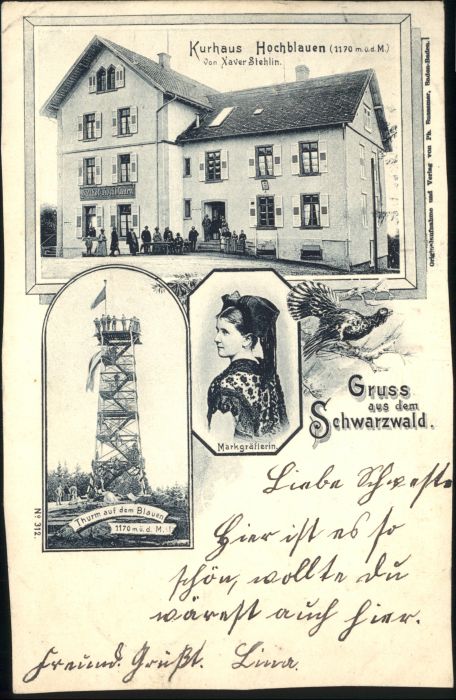 Kurhaus Hochblauen (1170 m.ü.d.M.)
Von Xaver Stehlin.
Originalaufnahme und Verlag von Ph. Baden-Baden.
Gruss
aus dem
Schwarzwald.
Markgräflerin.
Thurm auf dem Blauen
1170 m ü. d. M.
No 312.
Liebe Schwest
Hier ist es so
schön, wollte du
wärest auch hier.
Freund. Grüßt. Lina.